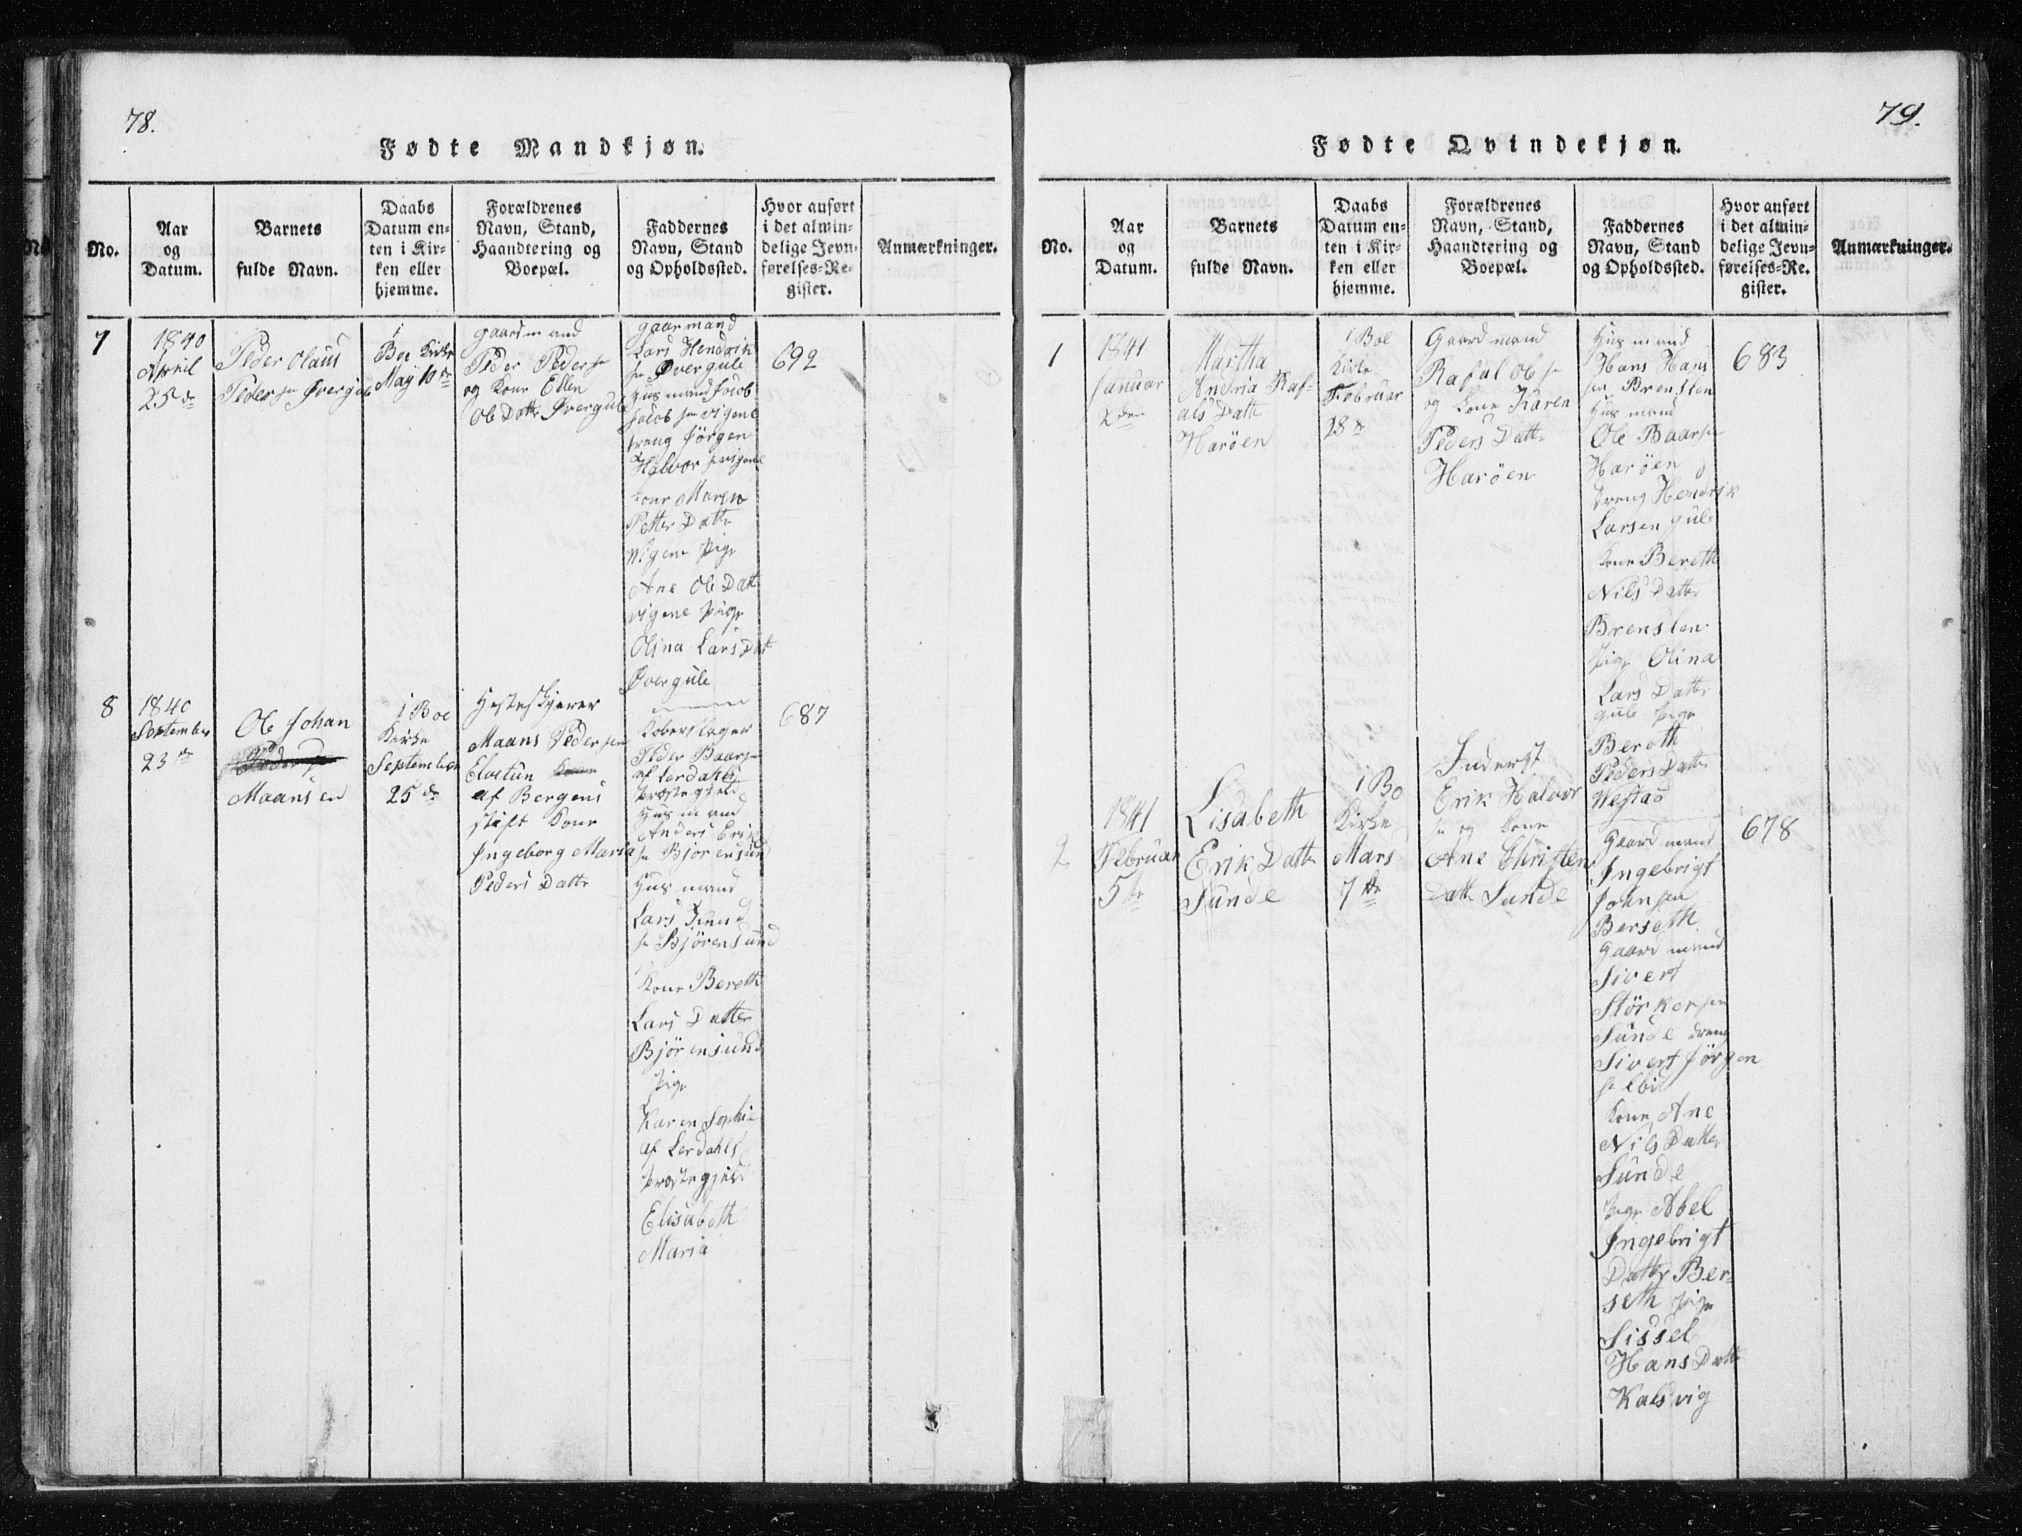 78.
Fødte Mandkjøn.
No.
Aar
og
Datum.
Barnets
fulde Navn.
Daabs
Datum en-
ten i Kir-
ken eller
hjemme.
Forældrenes
Navn, Stand,
Haandtering og
Boepæl.
Faddernes
Navn, Stand
og Opholdssted.
Hvor anført
i det almin-
delige Jevn-
førelses-Re-
gister.
Anmærkninger.
7
1840
April
25de
Peder Olaus
Peder sen Øvergule
i
Boe Kirke
May 10de
gaardmand
Peder Peder sen
og Kone Ellen
Ols Datter Øvergule
gaarmand
Lars Hendrik
sen Øvergule
Husmand Jacob
Jacob sen vigene
Dreng Jörgen
Halvor sen vigene
Kone Maren
Petter Datter
vigene Pige
Ane Ols Datter
vigene Pige
Olina Lars Datt
Øvergule
692
8
1840
September
23de
Ole Johan
Maansen
i Boe
Kirke
September
25de
Hesteskjerer
Maans Pedersen
Elvetun
af Bergens
stift Kone
Ingeborg Maria
Peders Datter
Koberslager
Peder Baarsen
af Lerdahls
Prästegjeld
Husmand
Anders Erik
sen Bjørensund
Husmand
Lars Knud
sen Bjørensund
Kone Bereth
Lars Datter
Bjørensund
Pige
Karen Sophie
af Lerdahls
Prästegjeld
Elisabeth
Maria
687
79.
Fødte Qvindekjøn.
No.
Aar
og
Datum.
Barnets
fulde Navn.
Daabs
Datum en-
ten i Kir-
ken eller
hjemme.
Forældrenes
Navn, Stand,
Haandtering og
Boepæl.
Faddernes
Navn, Stand
og Opholdssted.
Hvor anført
i det almin-
delige Jevn-
førelses-Re-
gister.
Anmærkninger.
1
1841
Januar
2den
Martha
Andria Raf-
als Datter
Harøen
i Boe
Kirke
Februar
28de
Gaardmand
Rafal Ols sen
og Kone Karen
Peders Datter
Harøen
Husmand
Hans Hans
sen Brensten
Husmand
Ole Baarsen
Harøen
Dreng Hendrik
Larsen gule
Kone Bereth
Nils Datter
Brensten
Pige Olina
Lars Datter
gule Pige
Bereth
Peders Datter
Westad
683
2
1841
Februar
5te
Lisabeth
Erik Datter
Sunde
i Bo
Kirke
Mars
7de
Inderst
Erik Halvor
sen og Kone
Ane Christen
Datter Sunde
Gaardmand
Ingebrigt
Johnsen
Berseth
Gaardmand
Sivert
Störkersen
Sunde Dreng
Sivert Jörgen
Kone Ane
Nils Datter
Sunde
Pige Abel
Ingebrigt
Datter Ber-
seth Pige
Sissel
Hans Datter
Kalsvig
678